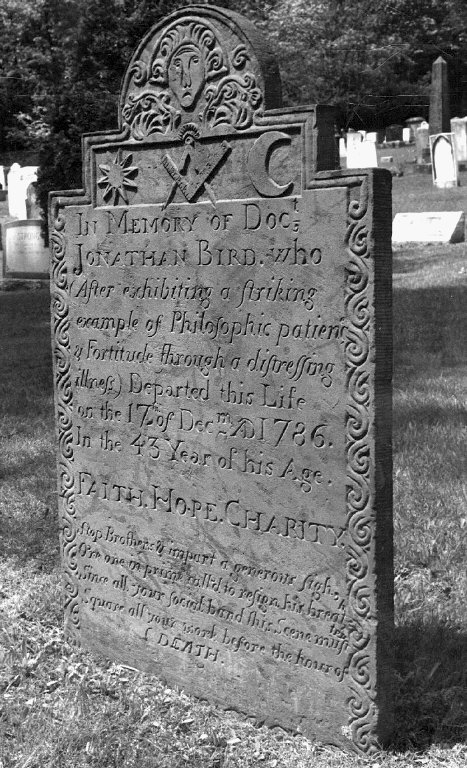 In Memory of Doct:
Jonathan Bird. who
(After exhibiting a striking
example of Philosophic patienc
& Fortitude through a distressing
illness) Departed this Life
on the 17th of Decm AD 1786.
In the 43 Year of his Age.
FAITH. HOPE. CHARITY.
Stop Brothers & impart a generous sigh,
O'er one in prime call'd to resign his breath
Since all your social band this Scene must
Square all your work before the hour of
DEATH.